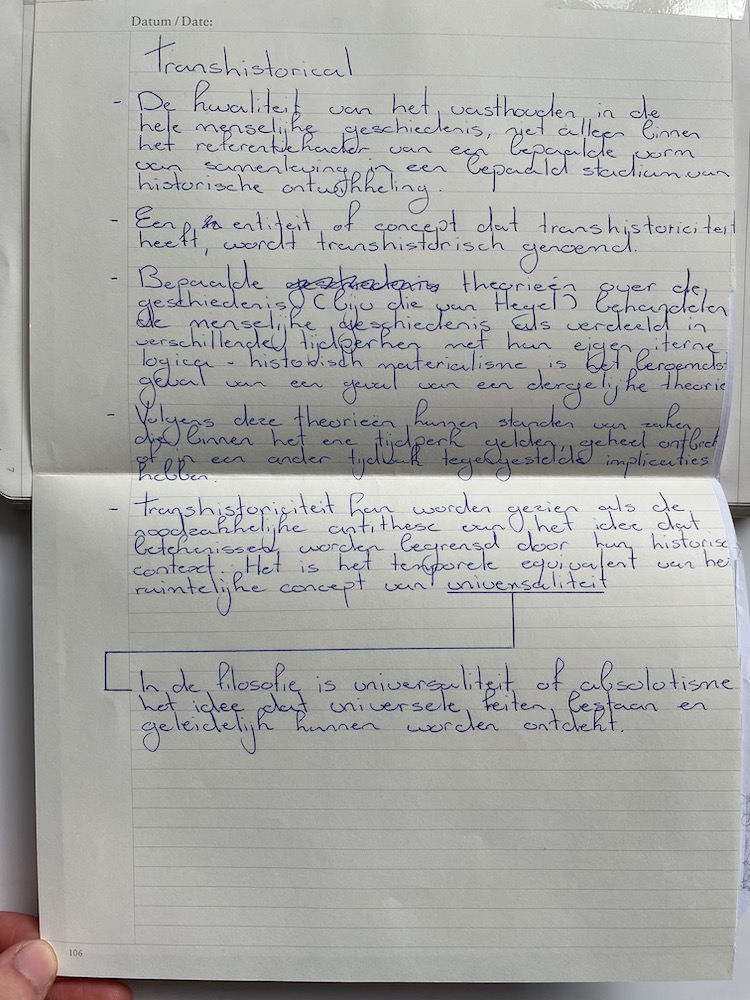 Datum / Date:
Transhistorical
- De kwaliteit van het vasthouden in de
hele menselijke geschiedenis, niet alleen binnen
het referentiekader van een bepaalde vorm
van samenleving in een bepaald stadium van
historische ontwikkeling.
- Een entiteit of concept dat transhistoriciteit
heeft, wordt transhistorisch genoemd.
- Bepaalde theorieën over de
geschiedenis (bijv die van Hegel) behandelen
de menselijke geschiedenis als verdeeld in
verschillende tijdperken met hun eigen iterne
logica - historisch materialisme is het beroemdst
geval van een geval van een dergelijke theorie
- Volgens deze theorieën kunnen standen van zaken
die binnen het ene tijdperk gelden, geheel ontbreken
of in een ander tijdvak tegengestelde implicaties
hebben.
- Transhistoriciteit kan worden gezien als de
noodzakkelijke antithese van het idee dat
betekenissen worden begrensd door hun historisc
context. Het is het temporele equivalent van het
ruimtelijke concept van universaliteit
In de filosofie is universaliteit of absolotisme
het idee dat universele feiten bestaan en
geleidelijk kunnen worden ontdekt.
106